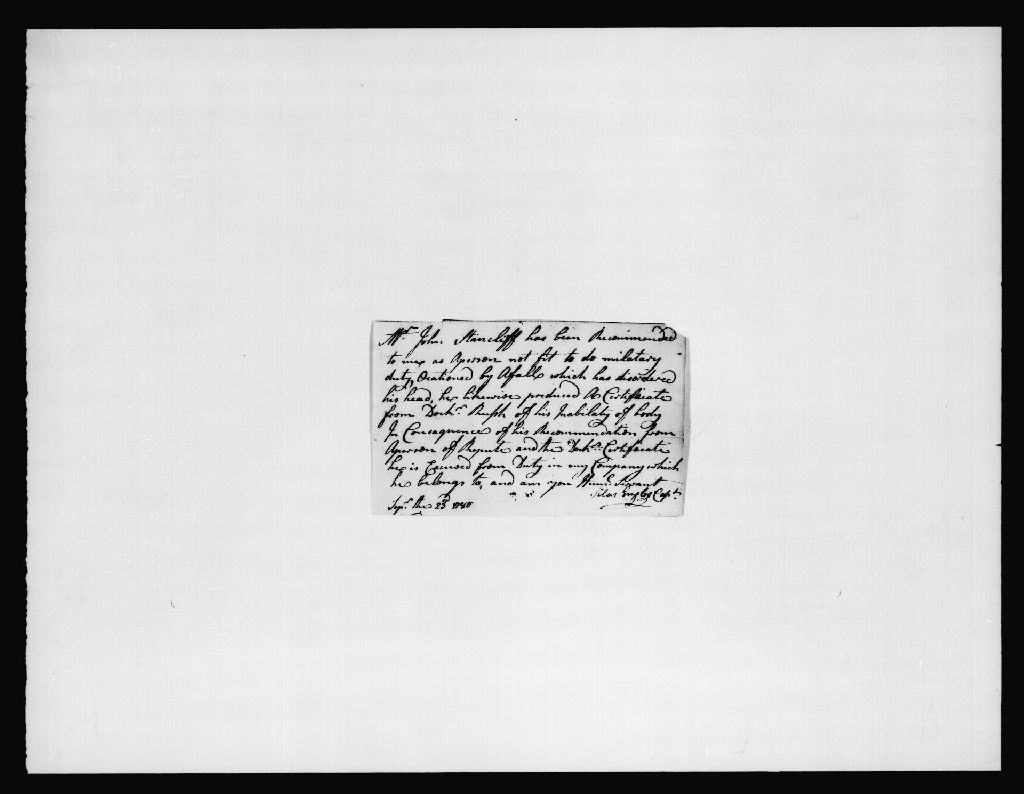 Mr. John Stancliff has been Recommended
to me as Aperson not fit to do militarry
duty, Ocationed by Afall which has disordered
his head, he likewise produced A Certificate
from Docter. Rush off his Inability of body
In Consequence of his Recommendation from
Aperson off Repute and the Docters. Certificate
he is Excused from Duty in my Company which
he belongs to, and am your Humb. Servant
Silas Engles Capt.
Sepr. the 23d 1780